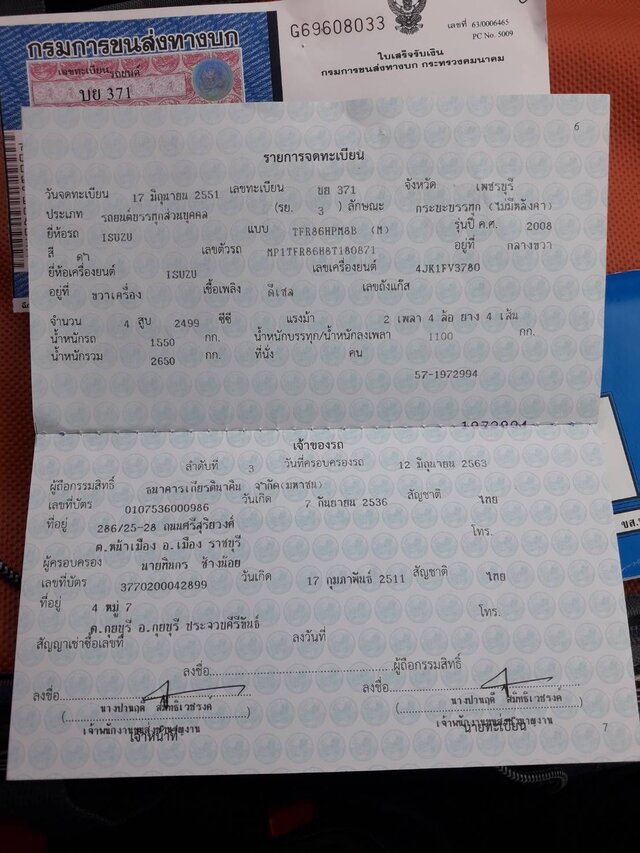 กรมการขนส่งทางบก
เลขทะเบียนรถยนต์
บย 371
G69608033
เลขที่ 63/0006465
PC No. 5009
ใบเสร็จรับเงิน
กรมการขนส่งทางบก กระทรวงคมนาคม
6
รายการจดทะเบียน
วันจดทะเบียน 17 มิถุนายน 2551 เลขทะเบียน บย 371 จังหวัด เพชรบุรี
ประเภท รถยนต์บรรทุกส่วนบุคคล (รย. 3 ) ลักษณะ กระบะบรรทุก (ไม่มีหลังคา)
ยี่ห้อรถ ISUZU แบบ TFR86HPM8B (M) รุ่นปี ค.ศ. 2008
สี ดำ เลขตัวรถ MP1TFR86H8T180871 อยู่ที่ กลางขวา
ยี่ห้อเครื่องยนต์ ISUZU เลขเครื่องยนต์ 4JK1FV3780
อยู่ที่ ขวาเครื่อง เชื้อเพลิง ดีเซล เลขถังแก๊ส
จำนวน 4 สูบ 2499 ซีซี แรงม้า 2 เพลา 4 ล้อ ยาง 4 เส้น
น้ำหนักรถ 1550 กก. น้ำหนักบรรทุก/น้ำหนักลงเพลา 1100 กก.
น้ำหนักรวม 2650 กก. ที่นั่ง คน
57-1972994
1972994
เจ้าของรถ
ลำดับที่ 3 วันที่ครอบครองรถ 12 มิถุนายน 2563
ผู้ถือกรรมสิทธิ์ ธนาคารเกียรตินาคิน จำกัด(มหาชน)
เลขที่บัตร 0107536000986 วันเกิด 7 กันยายน 2536 สัญชาติ ไทย
ที่อยู่ 286/25-28 ถนนศรีสุริยวงศ์
ต.หน้าเมือง อ.เมือง ราชบุรี โทร.
ผู้ครอบครอง นายทินกร ช้างน้อย
เลขที่บัตร 3770200042899 วันเกิด 17 กุมภาพันธ์ 2511 สัญชาติ ไทย
ที่อยู่ 4 หมู่ 7
ต.กุยบุรี อ.กุยบุรี ประจวบคีรีขันธ์ โทร.
สัญญาเช่าซื้อเลขที่ ลงวันที่
ลงชื่อ ผู้ถือกรรมสิทธิ์
ลงชื่อ ลงชื่อ
นางปานฤดี สมิทธิเวชรงค์ นางปานฤดี สมิทธิเวชรงค์
เจ้าพนักงานขนส่งชำนาญงาน เจ้าพนักงานขนส่งชำนาญงาน
เจ้าหน้าที่ นายทะเบียน
7